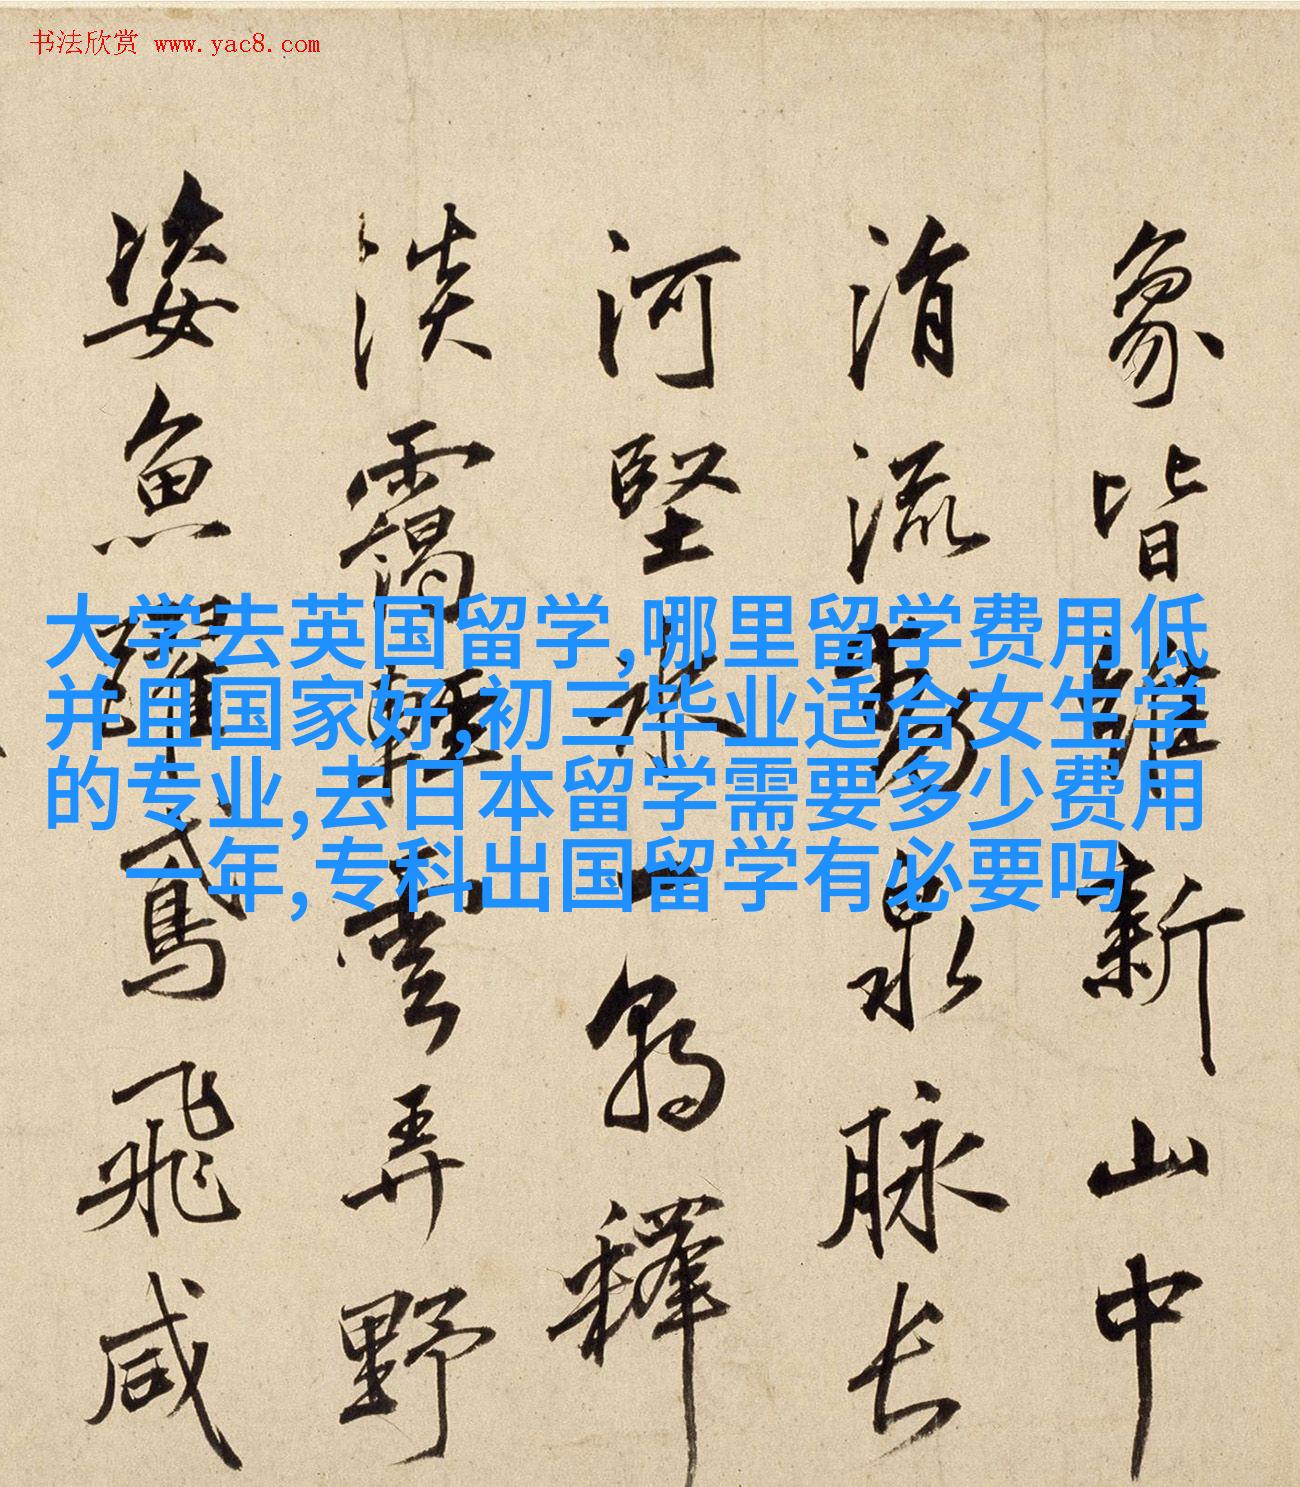 书法欣赏 www.yac8.com
象皆維新山中
涓流暢泉脉長
河堅冰一朝釋
淡靄輕雲弄野
姿魚躍鳶飛咸
大学去英国留学,哪里留学费用低
并且国家好,初三毕业适合女生学
的专业,去日本留学需要多少费用
一年,专科出国留学有必要吗